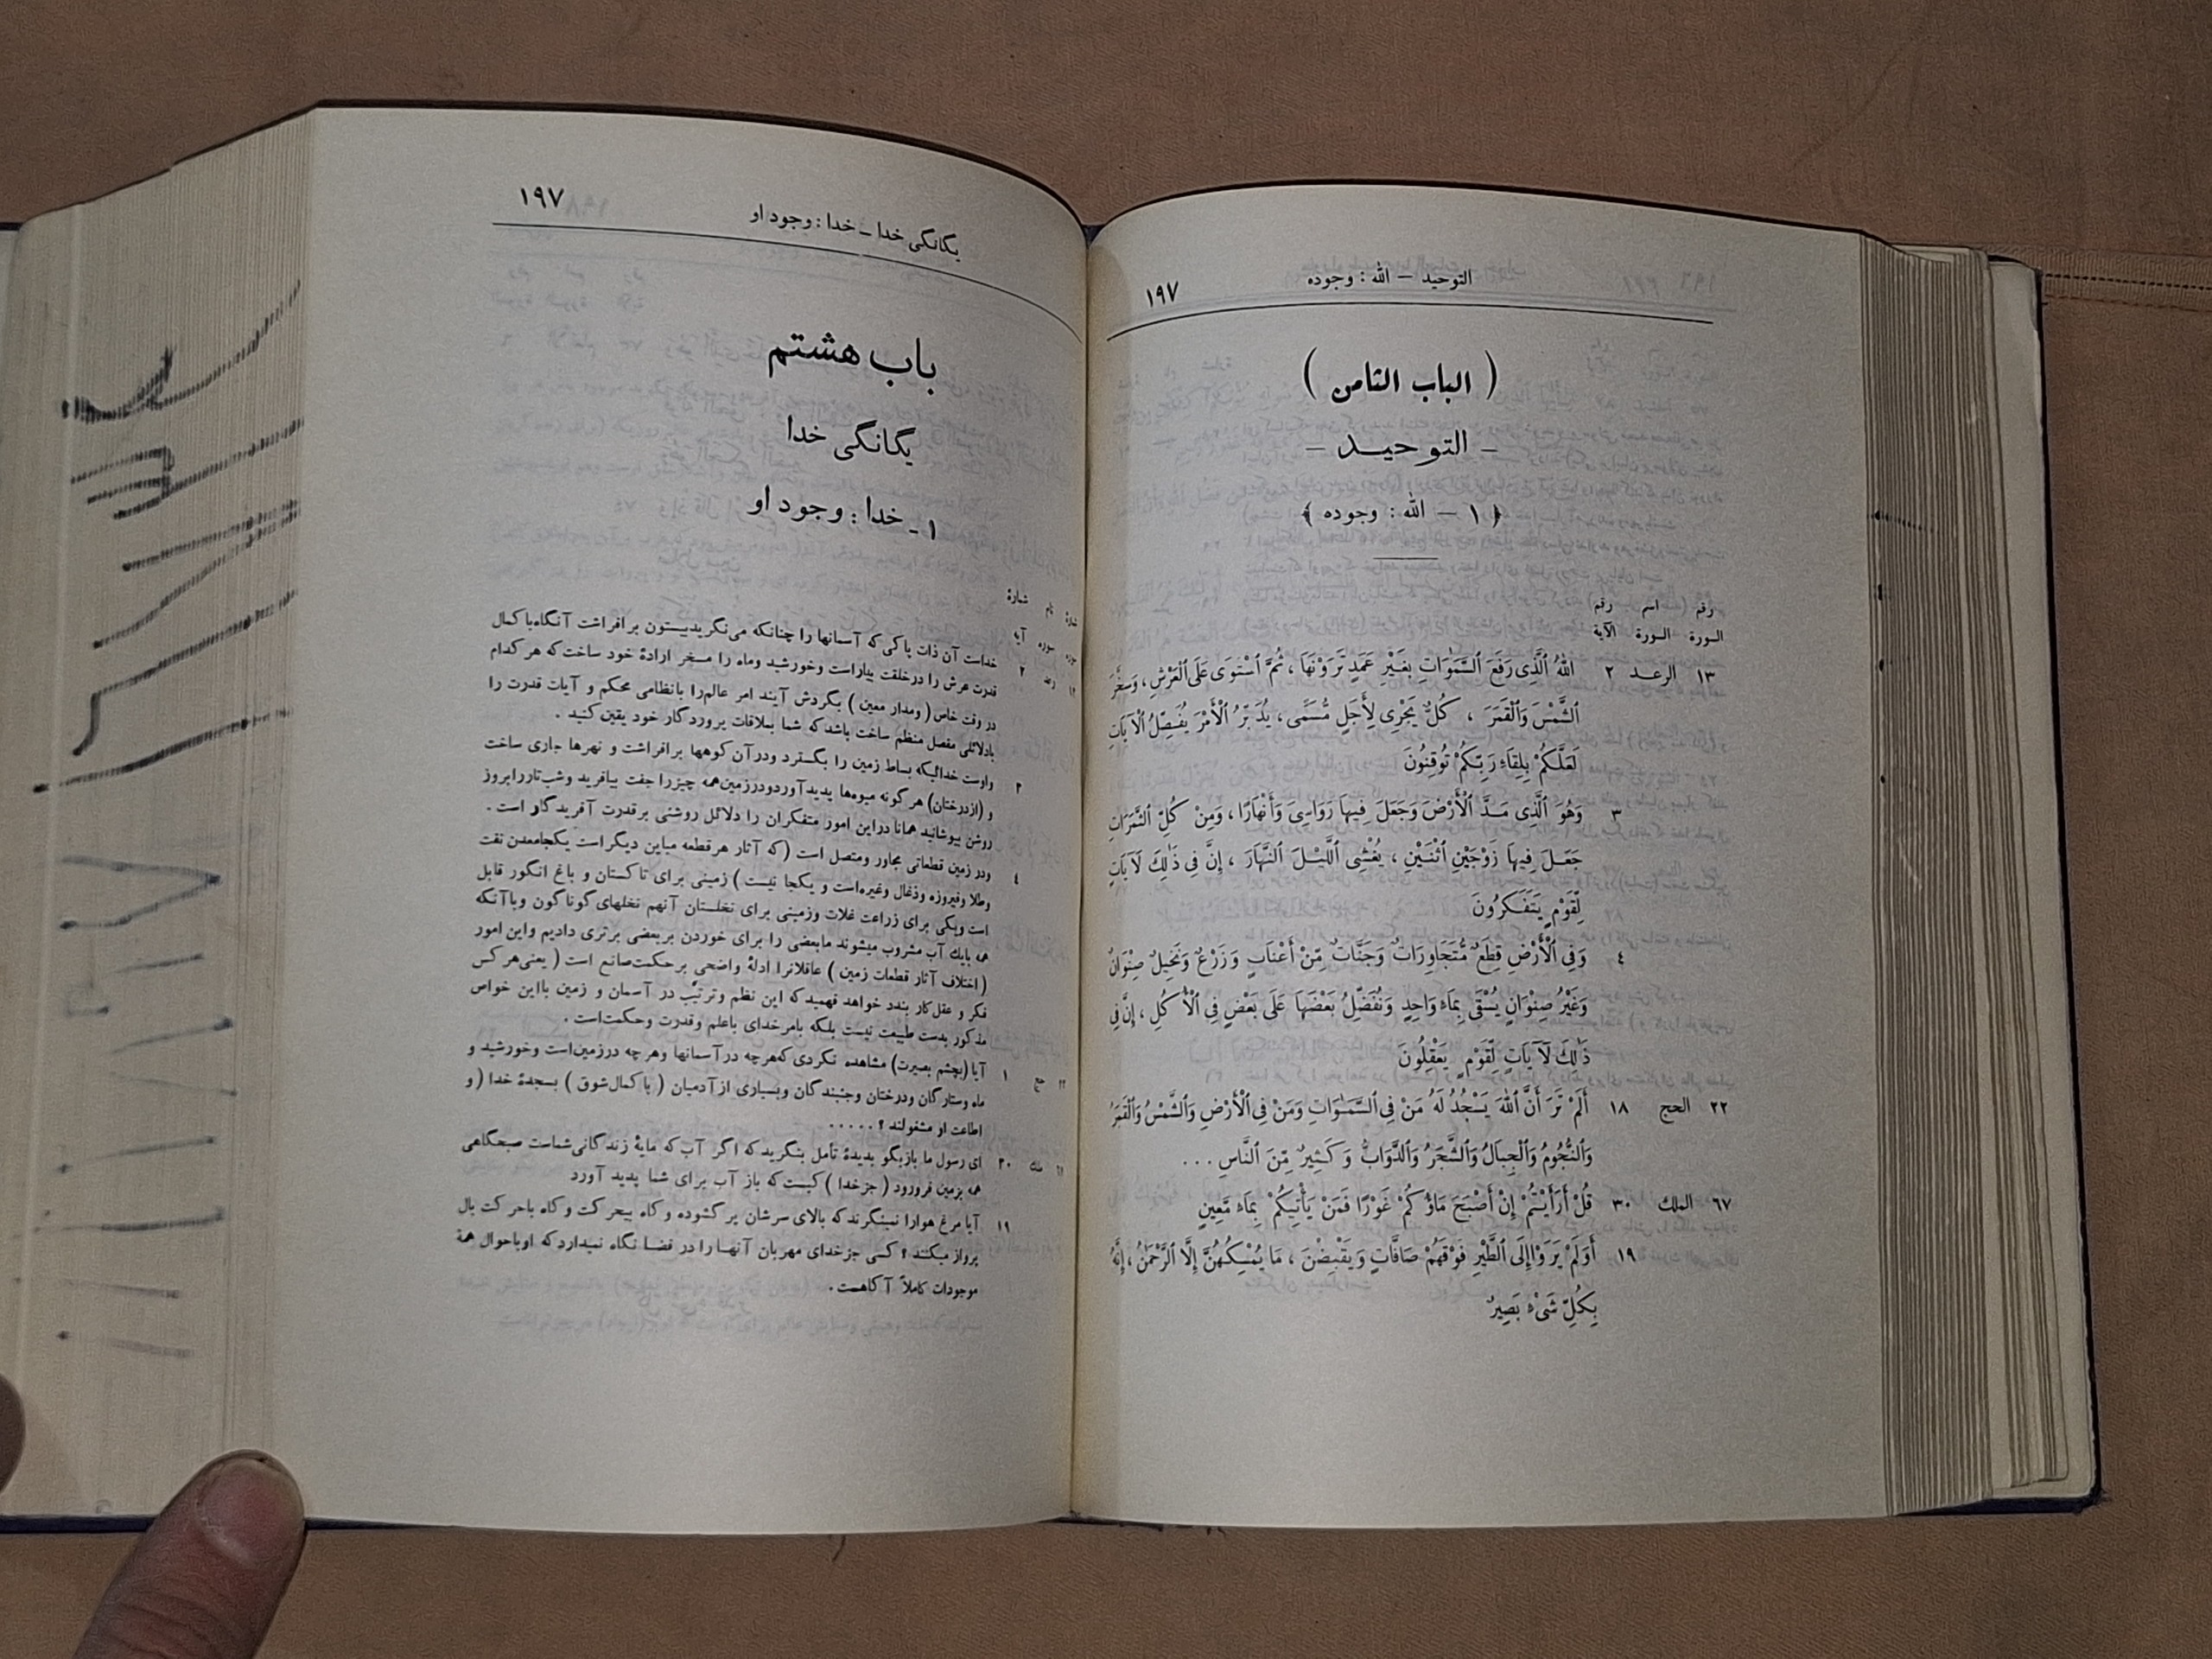 التوحيد — الله : وجوده
١٩٧
( الباب الثامن )
– التوحيد –
﴿ ١ – الله : وجوده ﴾
رقم اسم رقم
السورة السورة الآية
١٣ الرعد ٢ اللهُ ٱلَّذِى رَفَعَ ٱلسَّمَٰوَاتِ بِغَيْرِ عَمَدٍ تَرَوْنَهَا ، ثُمَّ ٱسْتَوَىٰ عَلَى ٱلْعَرْشِ ، وَسَخَّرَ
ٱلشَّمْسَ وَٱلْقَمَرَ ، كُلٌّ يَجْرِى لِأَجَلٍ مُّسَمًّى ، يُدَبِّرُ ٱلْأَمْرَ يُفَصِّلُ ٱلْآيَاتِ
لَعَلَّكُمْ بِلِقَاءِ رَبِّكُمْ تُوقِنُونَ
٣ وَهُوَ ٱلَّذِى مَدَّ ٱلْأَرْضَ وَجَعَلَ فِيهَا رَوَاسِىَ وَأَنْهَارًا ، وَمِنْ كُلِّ ٱلثَّمَرَاتِ
جَعَلَ فِيهَا زَوْجَيْنِ ٱثْنَيْنِ ، يُغْشِى ٱللَّيْلَ ٱلنَّهَارَ ، إِنَّ فِى ذَٰلِكَ لَآيَاتٍ
لِّقَوْمٍ يَتَفَكَّرُونَ
٤ وَفِى ٱلْأَرْضِ قِطَعٌ مُّتَجَاوِرَاتٌ وَجَنَّاتٌ مِّنْ أَعْنَابٍ وَزَرْعٌ وَنَخِيلٌ صِنْوَانٌ
وَغَيْرُ صِنْوَانٍ يُسْقَى بِمَاءٍ وَاحِدٍ وَنُفَضِّلُ بَعْضَهَا عَلَى بَعْضٍ فِى ٱلْأُكُلِ ، إِنَّ فِى
ذَٰلِكَ لَآيَاتٍ لِّقَوْمٍ يَعْقِلُونَ
٢٢ الحج ١٨ أَلَمْ تَرَ أَنَّ ٱللهَ يَسْجُدُ لَهُ مَنْ فِى ٱلسَّمَٰوَاتِ وَمَنْ فِى ٱلْأَرْضِ وَٱلشَّمْسُ وَٱلْقَمَرُ
وَٱلنُّجُومُ وَٱلْجِبَالُ وَٱلشَّجَرُ وَٱلدَّوَابُّ وَكَثِيرٌ مِّنَ ٱلنَّاسِ . . .
٦٧ الملك ٣٠ قُلْ أَرَأَيْتُمْ إِنْ أَصْبَحَ مَاؤُكُمْ غَوْرًا فَمَنْ يَأْتِيكُمْ بِمَاءٍ مَّعِينٍ
١٩ أَوَلَمْ يَرَوْا إِلَى ٱلطَّيْرِ فَوْقَهُمْ صَافَّاتٍ وَيَقْبِضْنَ ، مَا يُمْسِكُهُنَّ إِلَّا ٱلرَّحْمَٰنُ ، إِنَّهُ
بِكُلِّ شَىْءٍ بَصِيرٌ
یگانگی خدا ـ خدا : وجود او
١٩٧
باب هشتم
یگانگی خدا
١ ـ خدا : وجود او
شمارهٔ نام شمارهٔ
سوره سوره آیه
١٣ رعد ٢ خداست آن ذات پاکی که آسمانها را چنانکه می‌نگرید بیستون برافراشت آنگاه با کمال
قدرت عرش را در خلقت بیاراست و خورشید و ماه را مسخر ارادهٔ خود ساخت که هر کدام
در وقت خاص ( و مدار معین ) بگردش آیند امر عالم را با نظامی محکم و آیات قدرت را
با دلائلی مفصل منظم ساخت باشد که شما بملاقات پروردگار خود یقین کنید .
٣ و اوست خدائیکه بساط زمین را بگسترد و در آن کوهها برافراشت و نهرها جاری ساخت
و (از درختان) هر گونه میوه‌ها پدید آورد و در زمین همه چیز را جفت بیافرید و شب تار را بروز
روشن بپوشانید همانا در این امور متفکران را دلائل روشنی بر قدرت آفریدگار است .
٤ و در زمین قطعاتی مجاور و متصل است (که آثار هر قطعه مباین دیگر است یکجا معدن نفت
و طلا و فیروزه و ذغال و غیره است و یکجا نیست ) زمینی برای تاکستان و باغ انگور قابل
است و یکی برای زراعت غلات و زمینی برای نخلستان آنهم نخلهای گوناگون و با آنکه
همه بایك آب مشروب میشوند ما بعضی را برای خوردن بر بعضی برتری دادیم و این امور
( اختلاف آثار قطعات زمین ) عاقلانرا ادلهٔ واضحی بر حکمت صانع است ( یعنی هر کس
فکر و عقل کار بندد خواهد فهمید که این نظم و ترتیب در آسمان و زمین با این خواص
مذکور بدست طبیعت نیست بلکه بامر خدای با علم و قدرت و حکمت است .
٢٢ حج ١ آیا (بچشم بصیرت) مشاهده نکردی که هر چه در آسمانها و هر چه در زمین است و خورشید و
ماه و ستارگان و درختان و جنبندگان و بسیاری از آدمیان ( با کمال شوق ) بسجدهٔ خدا ( و
اطاعت او مشغولند ؟ . . . . .
ملك ٣٠ ای رسول ما بازبگو بدیدهٔ تأمل بنگرید که اگر آب که مایهٔ زندگانی شماست صبحگاهی
همه بزمین فرو رود ( جز خدا ) کیست که باز آب برای شما پدید آورد
١٩ آیا مرغ هوا را نمینگرند که بالای سرشان پر گشوده و گاه بیحرکت و گاه با حرکت بال
پرواز میکنند ؟ کسی جز خدای مهربان آنها را در فضا نگاه نمیدارد که او باحوال همهٔ
موجودات کاملاً آگاهست .